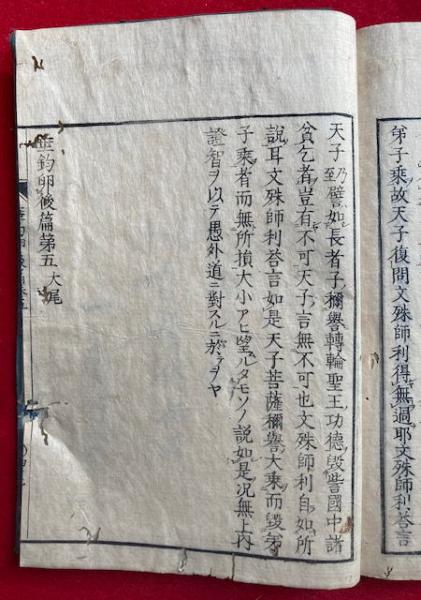 弟子乘故天子復問文殊師利得無過耶文殊師利荅言
天子乃至譬如長者子稱譽轉輪聖王功德毀呰國中諸
貧乞者豈有不可天子言無不可也文殊師利自如所
說耳文殊師利荅言如是天子菩薩稱譽大乘而毀弟
子乘者而無所損大小アヒ望ルタモソノ說如是况無上內
證智ヲ以テ愚外道ニ對スルニ於ヲヤ
垂釣卵後篇第五 大尾